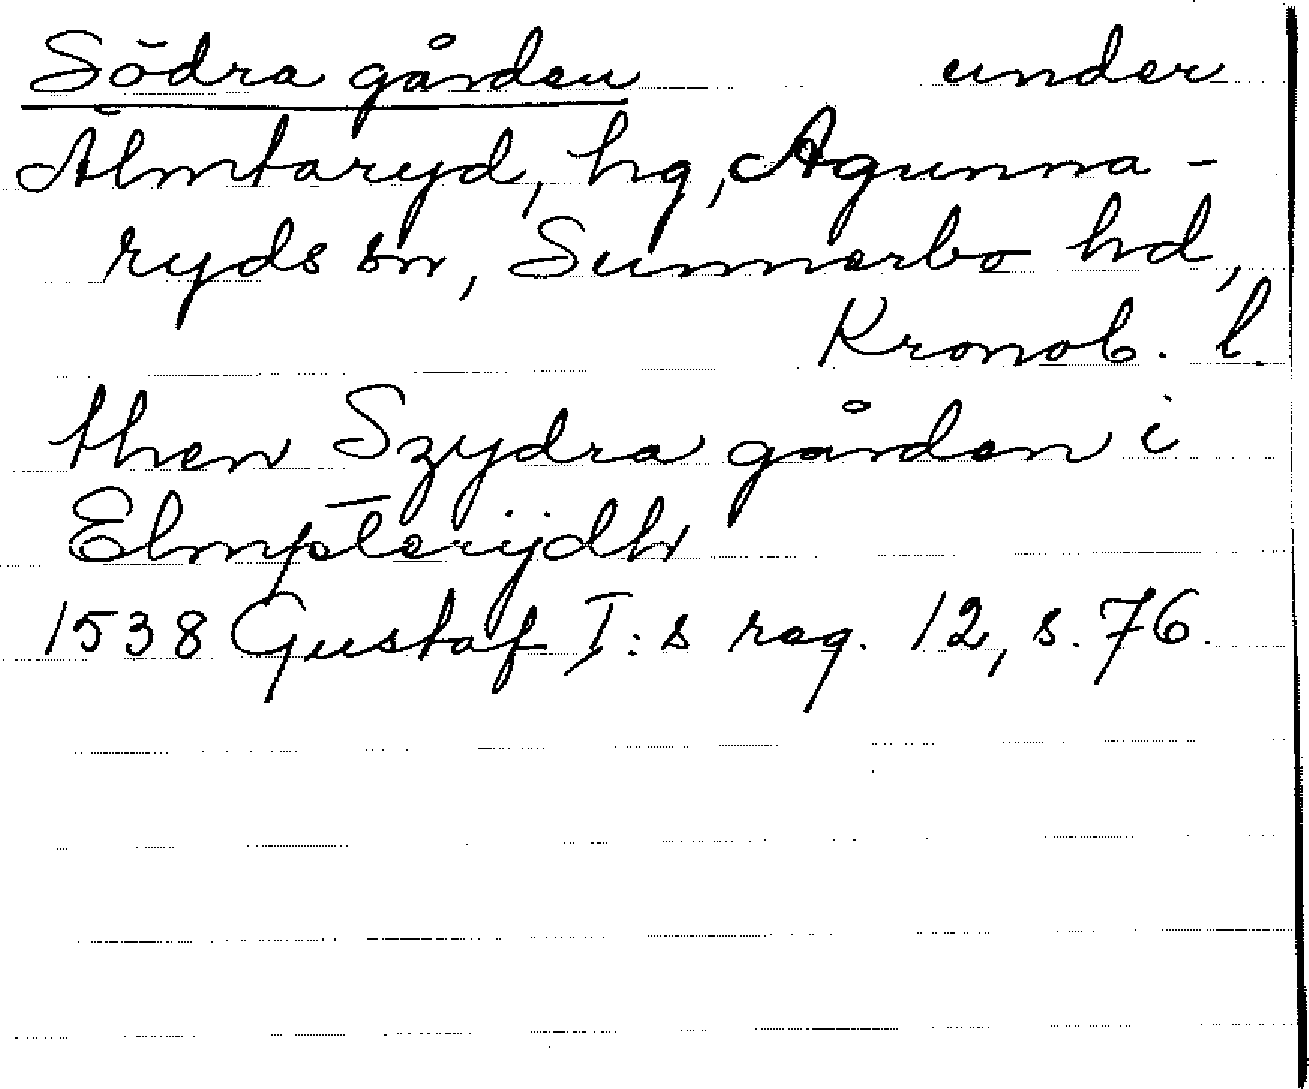 Södra gården under
Älmtaryd, hg, Agunna-
ryds sn, Sunnerbo hd,
Kronob. l.
then Szydra gården i
Elmpterÿdh
1538 Gustaf I:s reg. 12, s. 76.